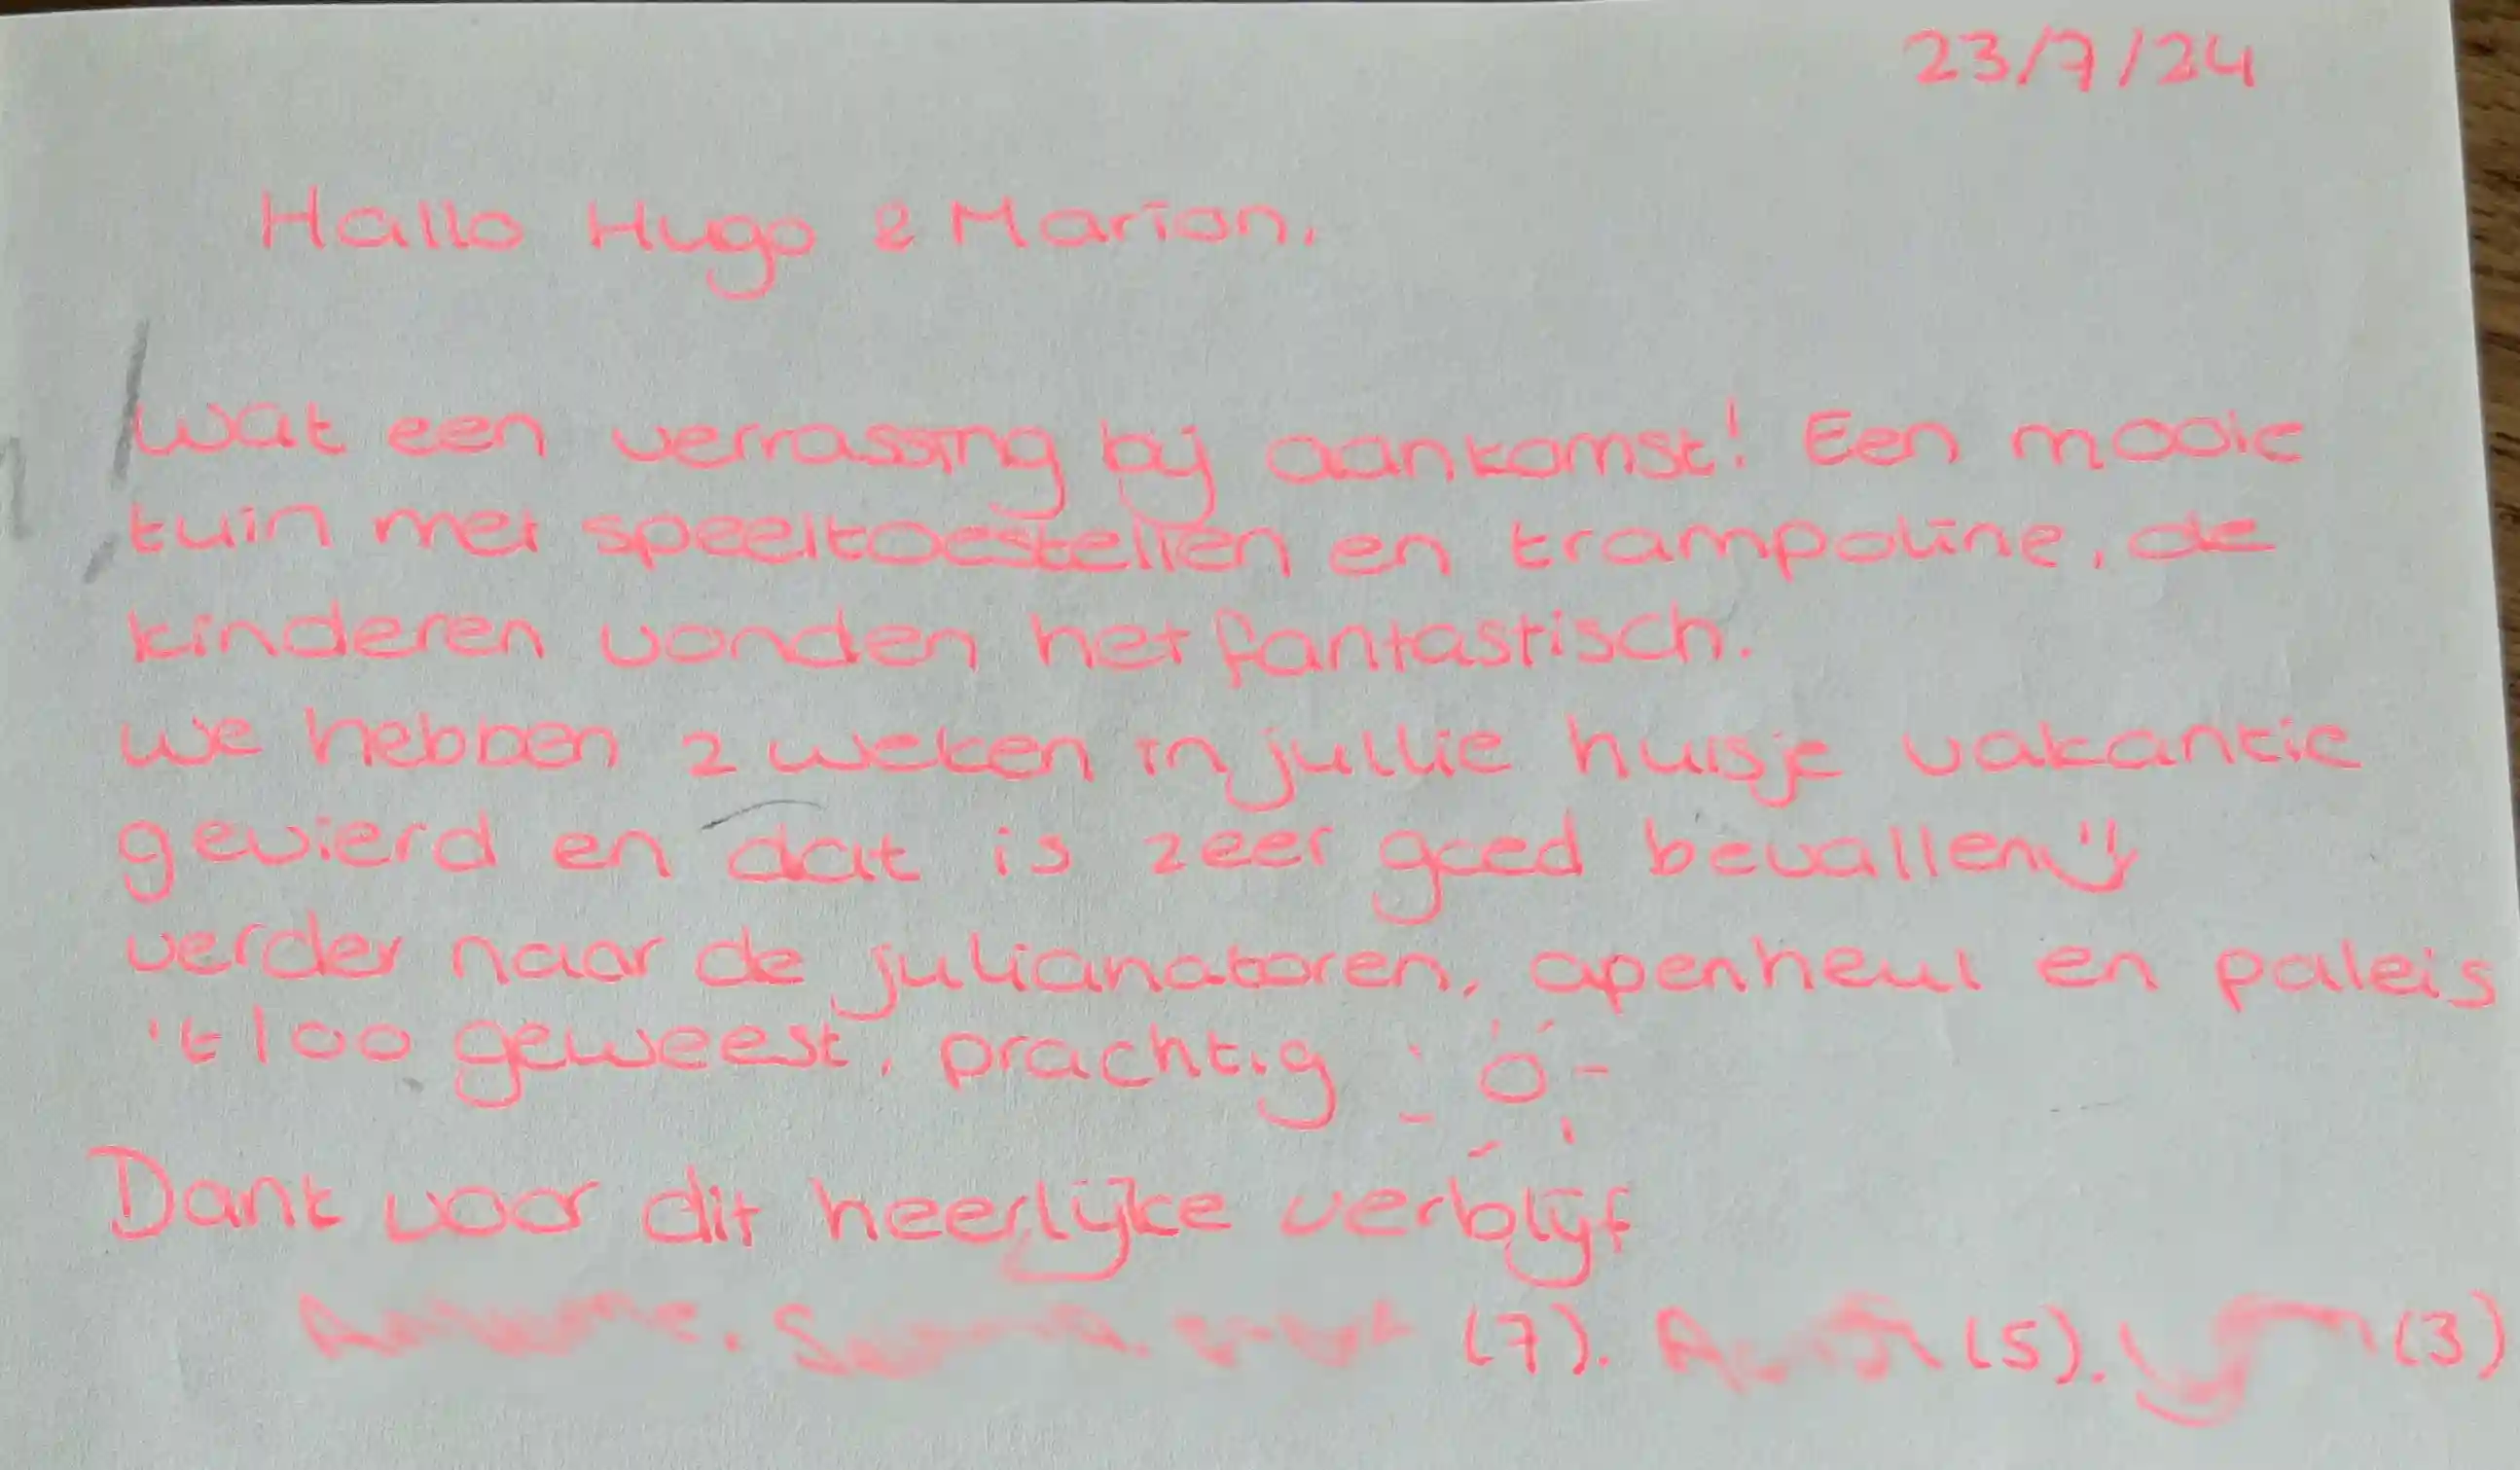 23/7/24
Hallo Hugo & Marion,
Wat een verrassing bij aankomst! Een mooie
tuin met speeltoestellen en trampoline, de
kinderen vonden het fantastisch.
We hebben 2 weken in jullie huisje vakantie
gevierd en dat is zeer goed bevallen
verder naar de julianatoren, apenheul en paleis
't loo geweest, prachtig
Dank voor dit heerlijke verblijf
(7). (5). (3)